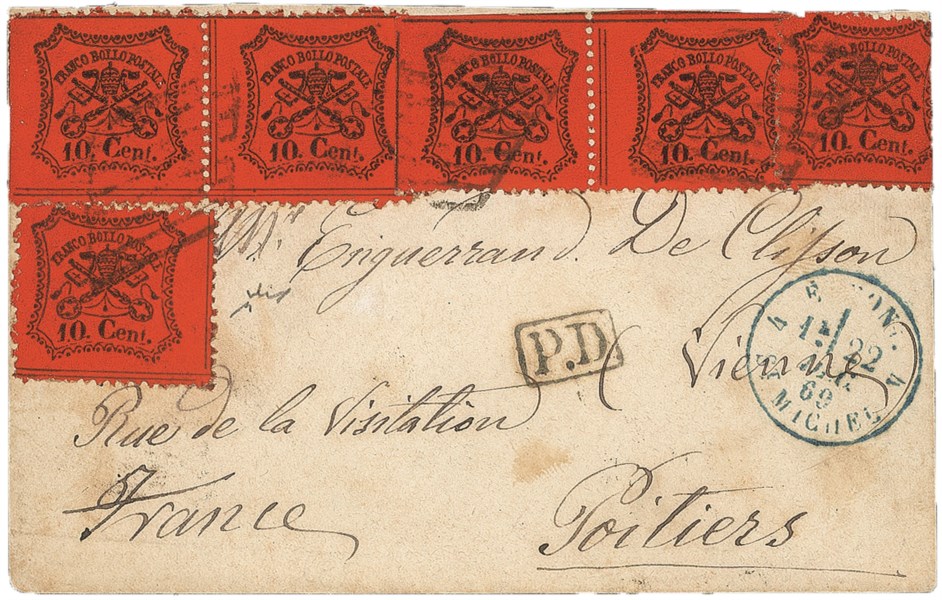 FRANCO BOLLO POSTALE FRANCO BOLLO POSTALE FRANCO BOLLO POSTALE FRANCO BOLLO POSTALE FRANCO BOLLO POSTALE
10. Cent. 10. Cent. 10. Cent. 10. Cent. 10. Cent.
FRANCO BOLLO POSTALE
10. Cent.
Mr Enguerrand De Clisson
P.D.
Vienne
22
69
MICHEL
Rue de la Visitation
Poitiers
France